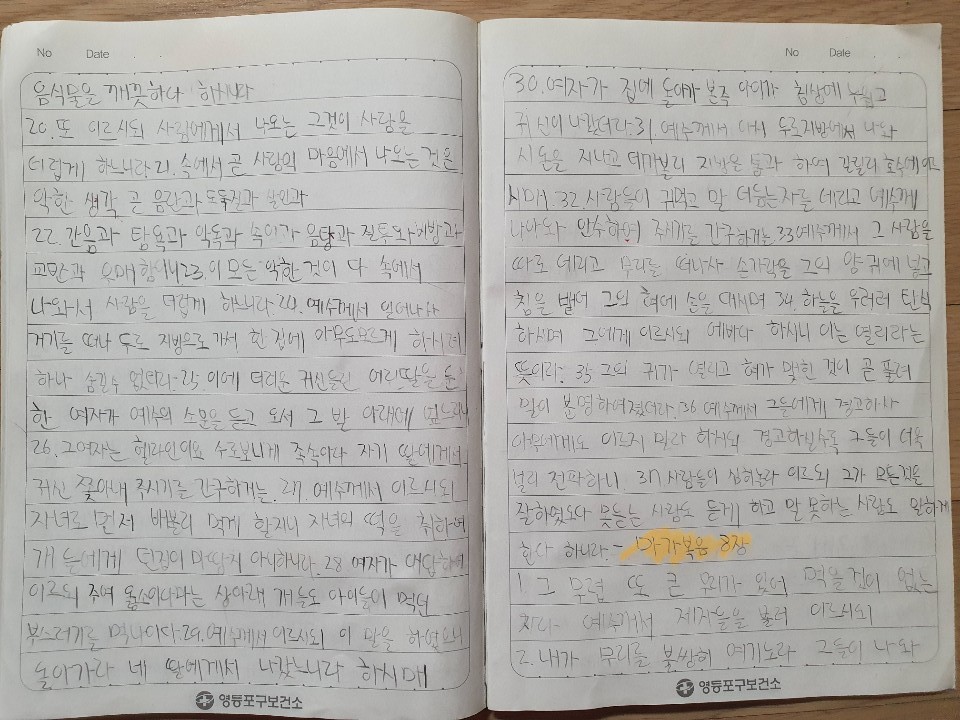 No Date
음식물을 깨끗하다 하시니라
20. 또 이르시되 사람에게서 나오는 그것이 사람을
더럽게 하느니라 21. 속에서 곧 사람의 마음에서 나오는 것은
악한 생각 곧 음란과 도둑질과 살인과
22. 간음과 탐욕과 악독과 속임과 음탕과 질투와 비방과
교만과 우매함이니 23. 이 모든 악한 것이 다 속에서
나와서 사람을 더럽게 하느니라. 24. 예수께서 일어나사
거기를 떠나 두로 지방으로 가서 한 집에 아무도 모르게 하시려
하나 숨길수 없더라. 25. 이에 더러운 귀신들린 어린딸을 둔
한 여자가 예수의 소문을 듣고 와서 그 발 아래에 엎드리니
26. 그여자는 헬라인이요 수로보니게 족속이라 자기 딸에게서
귀신 쫓아내 주시기를 간구하거늘. 27. 예수께서 이르시되
자녀로 먼저 배불리 먹게 할지니 자녀의 떡을 취하여
개 들에게 던짐이 마땅치 아니하니라. 28 여자가 대답하여
이르되 주여 옳소이다마는 상아래 개들도 아이들이 먹던
부스러기를 먹나이다. 29. 예수께서 이르시되 이 말을 하였으니
돌아가라 네 딸에게서 나갔느니라 하시매
영등포구보건소
No Date
30. 여자가 집에 돌아가 본즉 아이가 침상에 누웠고
귀신이 나갔더라. 31. 예수께서 다시 두로지방에서 나와
시돈을 지나고 데가볼리 지방을 통과 하여 갈릴리 호수에
시매. 32. 사람들이 귀먹고 말 더듬는자를 데리고 예수께
나아와 안수하여 주시기를 간구하거늘 33 예수께서 그 사람을
따로 데리고 무리를 떠나사 손가락을 그의 양 귀에 넣고
침을 뱉어 그의 혀에 손을 대시며 34. 하늘을 우러러 탄식
하시며 그에게 이르시되 에바다 하시니 이는 열리라는
뜻이라. 35 그의 귀가 열리고 혀가 맺힌 것이 곧 풀려
말이 분명하여졌더라. 36 예수께서 그들에게 경고하사
아무에게도 이르지 말라 하시되 경고하실수록 그들이 더욱
널리 전파하니. 37 사람들이 심히놀라 이르되 그가 모든것을
잘하였도다 못듣는 사람도 듣게 하고 말 못하는 사람도 말하게
한다 하니라. - 마가복음 8장
1. 그 무렵 또 큰 무리가 있어 먹을것이 없는
지라 예수께서 제자들을 불러 이르시되
2. 내가 무리를 불쌍히 여기노라 그들이 나와
영등포구보건소